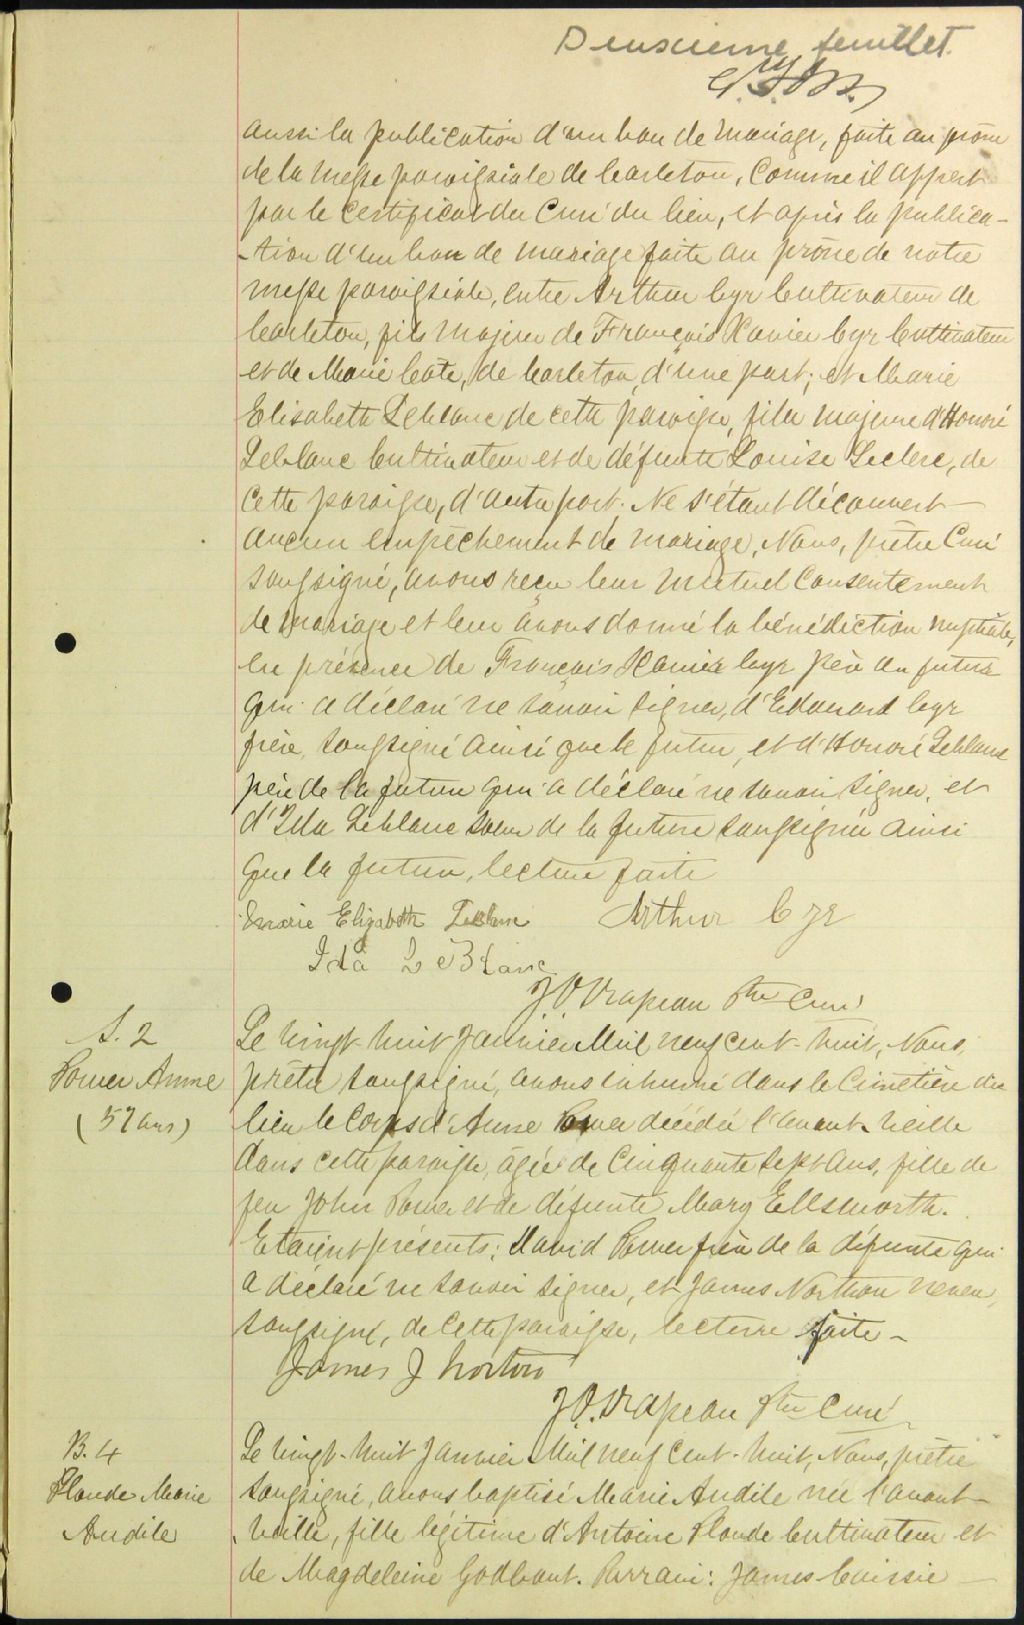 Deuxième feuillet.
aussi la publication d'un ban de mariage, faite au prône
de la messe paroissiale de Carleton, comme il appert
par le certificat du Curé du lieu, et après la publica-
-tion d'un ban de mariage faite au prône de notre
messe paroissiale, entre Arthur Cyr Cultivateur de
Carleton, fils majeur de François Xavier Cyr Cultivateur
et de Marie Coté, de Carleton, d'une part; et Marie
Elisabeth Leblanc de cette paroisse, fille majeure d'Honoré
Leblanc Cultivateur et de défunte Louise Leclerc, de
cette paroisse, d'autre part. Ne s'étant découvert
aucun empêchement de mariage, Nous, prêtre Curé
soussigné, avons reçu leur mutuel Consentement
de mariage et leur avons donné la bénédiction nuptiale,
en présence de François Xavier Cyr père du futur
qui a déclaré ne savoir signer, d'Edouard Cyr
frère, soussigné ainsi que le futur, et d'Honoré Leblanc
père de la future qui a déclaré ne savoir signer, et
d'Ida Leblanc soeur de la future soussignée ainsi
que la future, lecture faite
Marie Elizabeth Leblanc Arthur Cyr
Ida LeBlanc
J. O. Drapeau Ptre Curé
S. 2
Power Anne
(57 ans)
Le vingt-huit Janvier Mil neuf cent-huit, Nous,
prêtre soussigné, avons inhumé dans le Cimetière du
lieu le corps d'Anne Power décédée l'avant-veille
dans cette paroisse, âgée de Cinquante sept ans, fille de
feu John Power et de défunte Mary Ellsworth.
Etaient présents: David Power frère de la défunte qui
a déclaré ne savoir signer, et James Northon neveu,
soussigné, de cette paroisse, lecture faite -
James J Norton
J. O. Drapeau Ptre Curé
B. 4
Plourde Marie
Audile
Le vingt-huit Janvier Mil neuf Cent-huit, Nous, prêtre
soussigné, avons baptisé Marie Audile née l'avant-
veille, fille légitime d'Antoine Plourde Cultivateur et
de Magdeleine Godbout. Parrain: James Cuissie